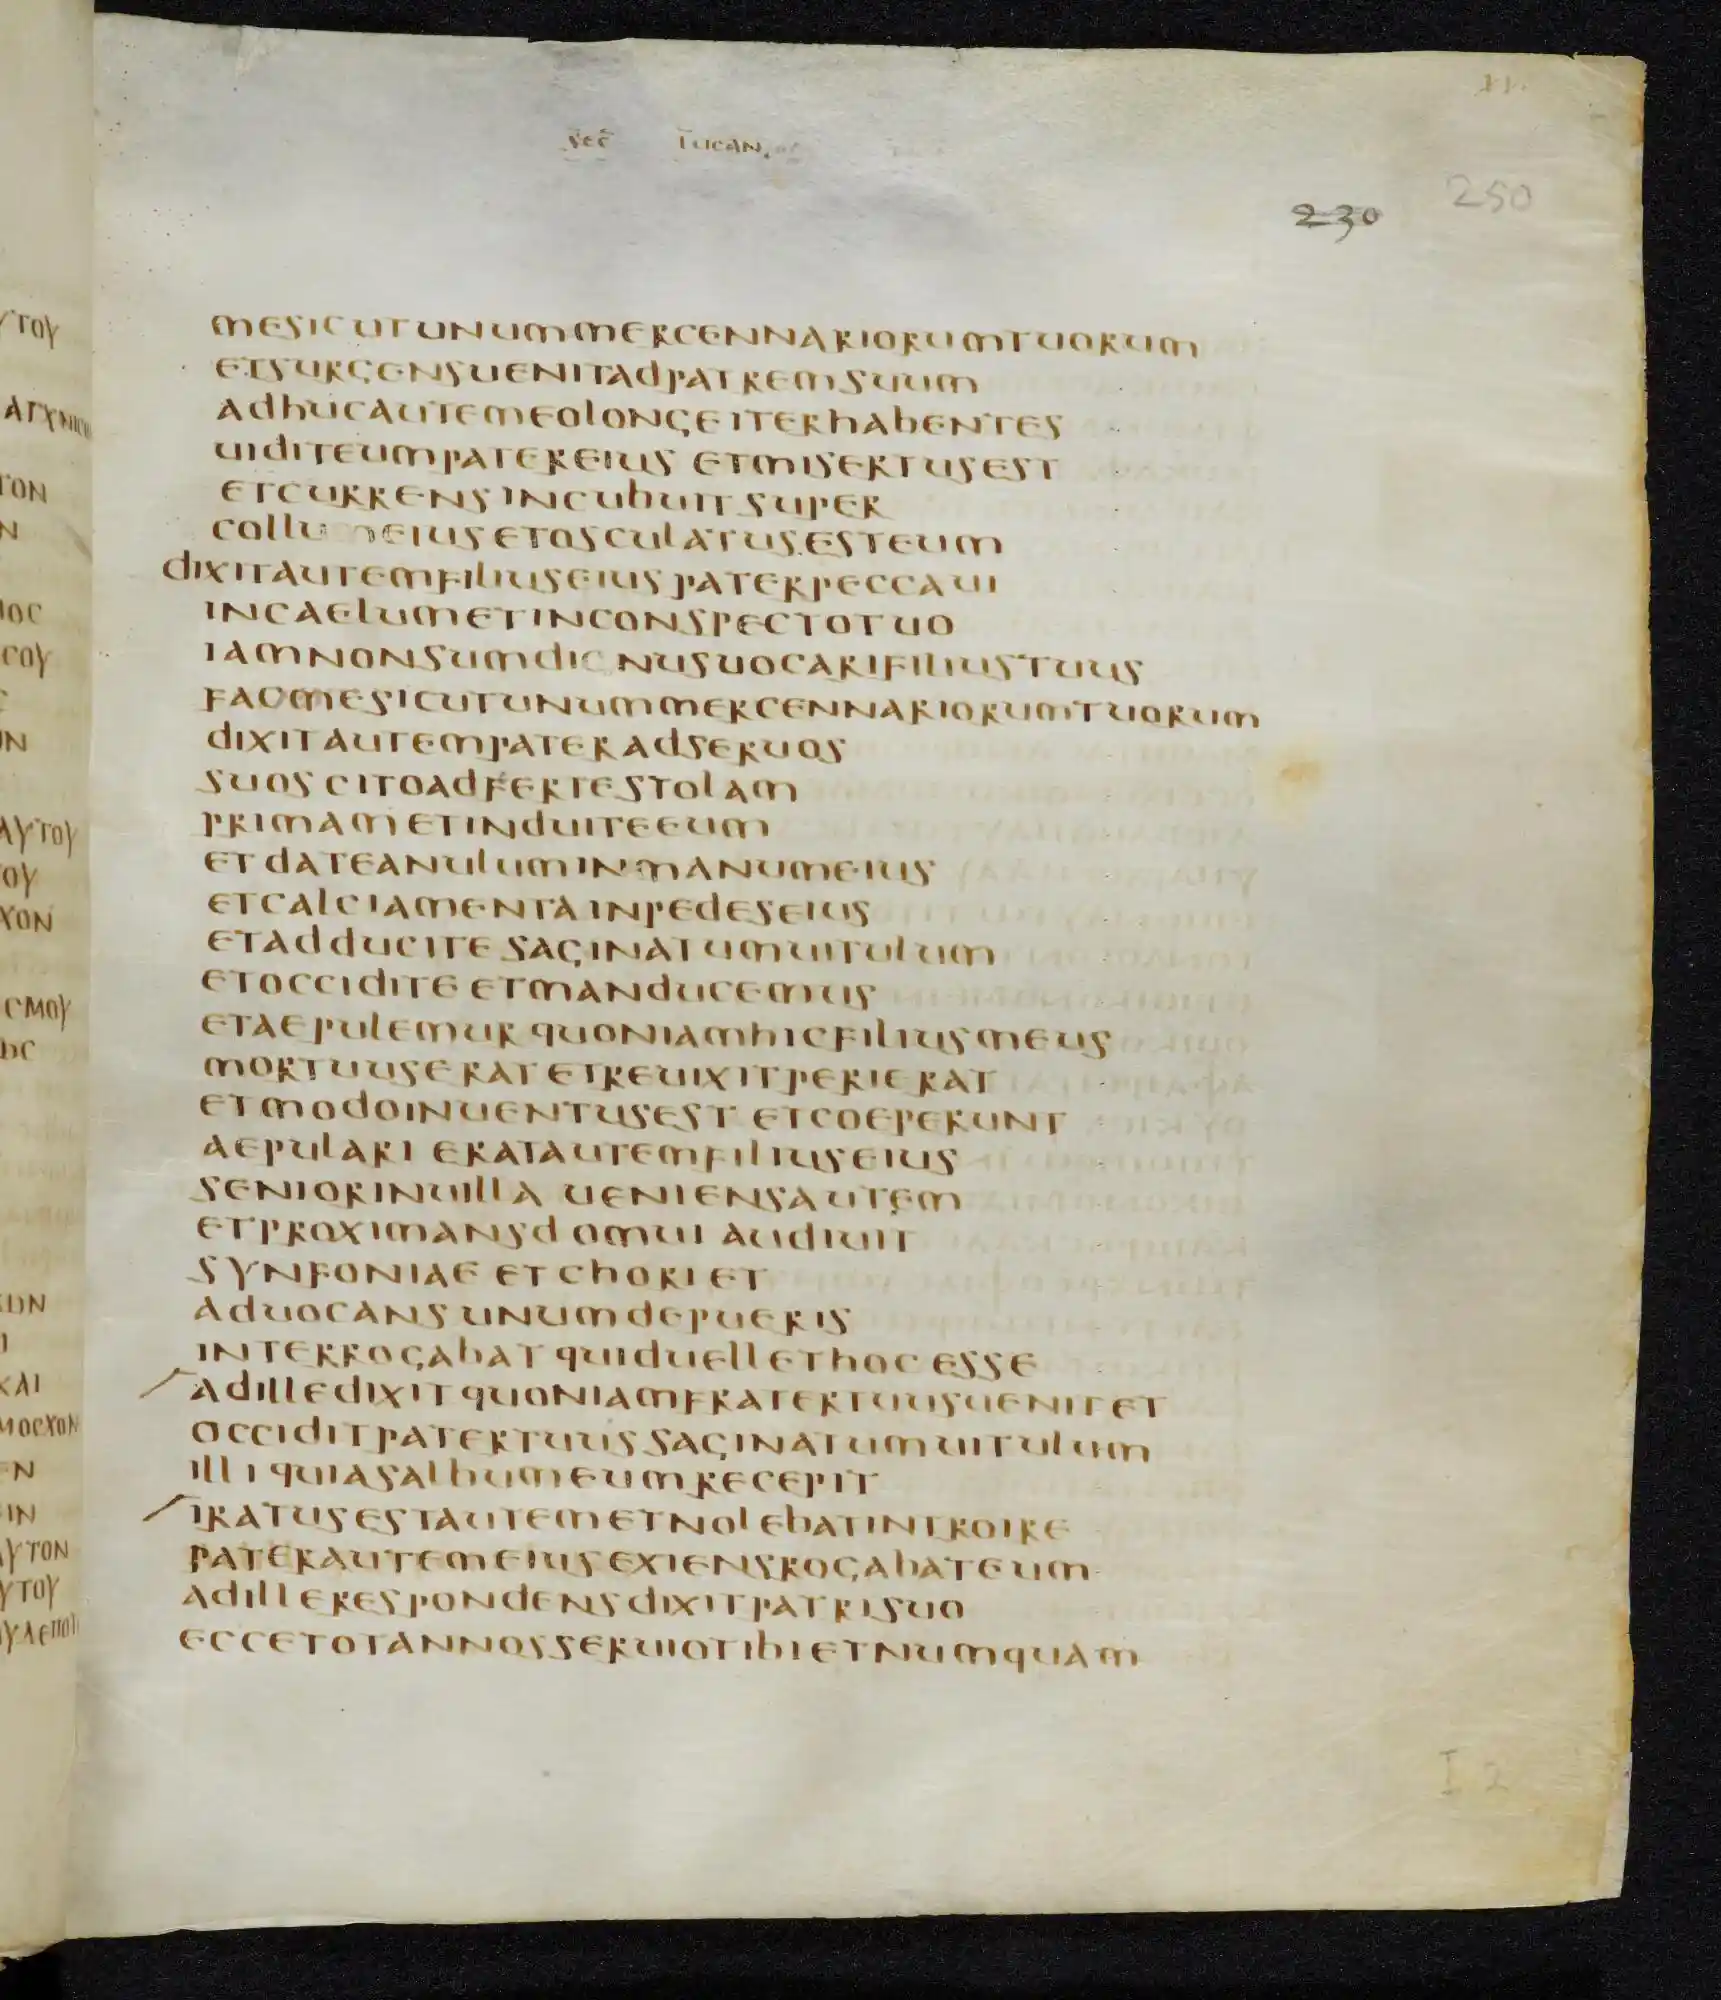 sec lucan
230
250
mesicutunummercennariorumtuorum
etsurgensuenitadpatremsuum
adhucautemeolongeiterhabentes
uiditeumpatereius etmisertusest
etcurrensincubuit super
collumeiusetosculatusesteum
dixitautemfiliuseius paterpeccaui
incaelumetinconspectotuo
iamnonsumdignusuocarifiliustuus
facmesicutunummercennariorumtuorum
dixitautempateradseruos
suos citoadfertestolam
primametinduiteeum
etdateanuluminmanumeius
etcalciamentainpedeseius
etadducite saginatumuitulum
etoccidite etmanducemus
etaepulemur quoniamhicfiliusmeus
mortuuserat etreuixitperierat
etmodoinuentusest etcoeperunt
aepulari eratautemfiliuseius
seniorinuilla ueniensautem
etproximansdomui audiuit
synfoniae etchoriet
aduocansunumdepueris
interrogabat quiduellethoc esse
adilledixitquoniamfratertuusuenitet
occiditpatertuus saginatumuitulum
illi quiasalbumeumrecepit
iratusestautemetnolebatintroire
paterautemeiusexiensrogabateum
adillerespondensdixitpatrisuo
eccetotannosseruiotibietnumquam
I 2